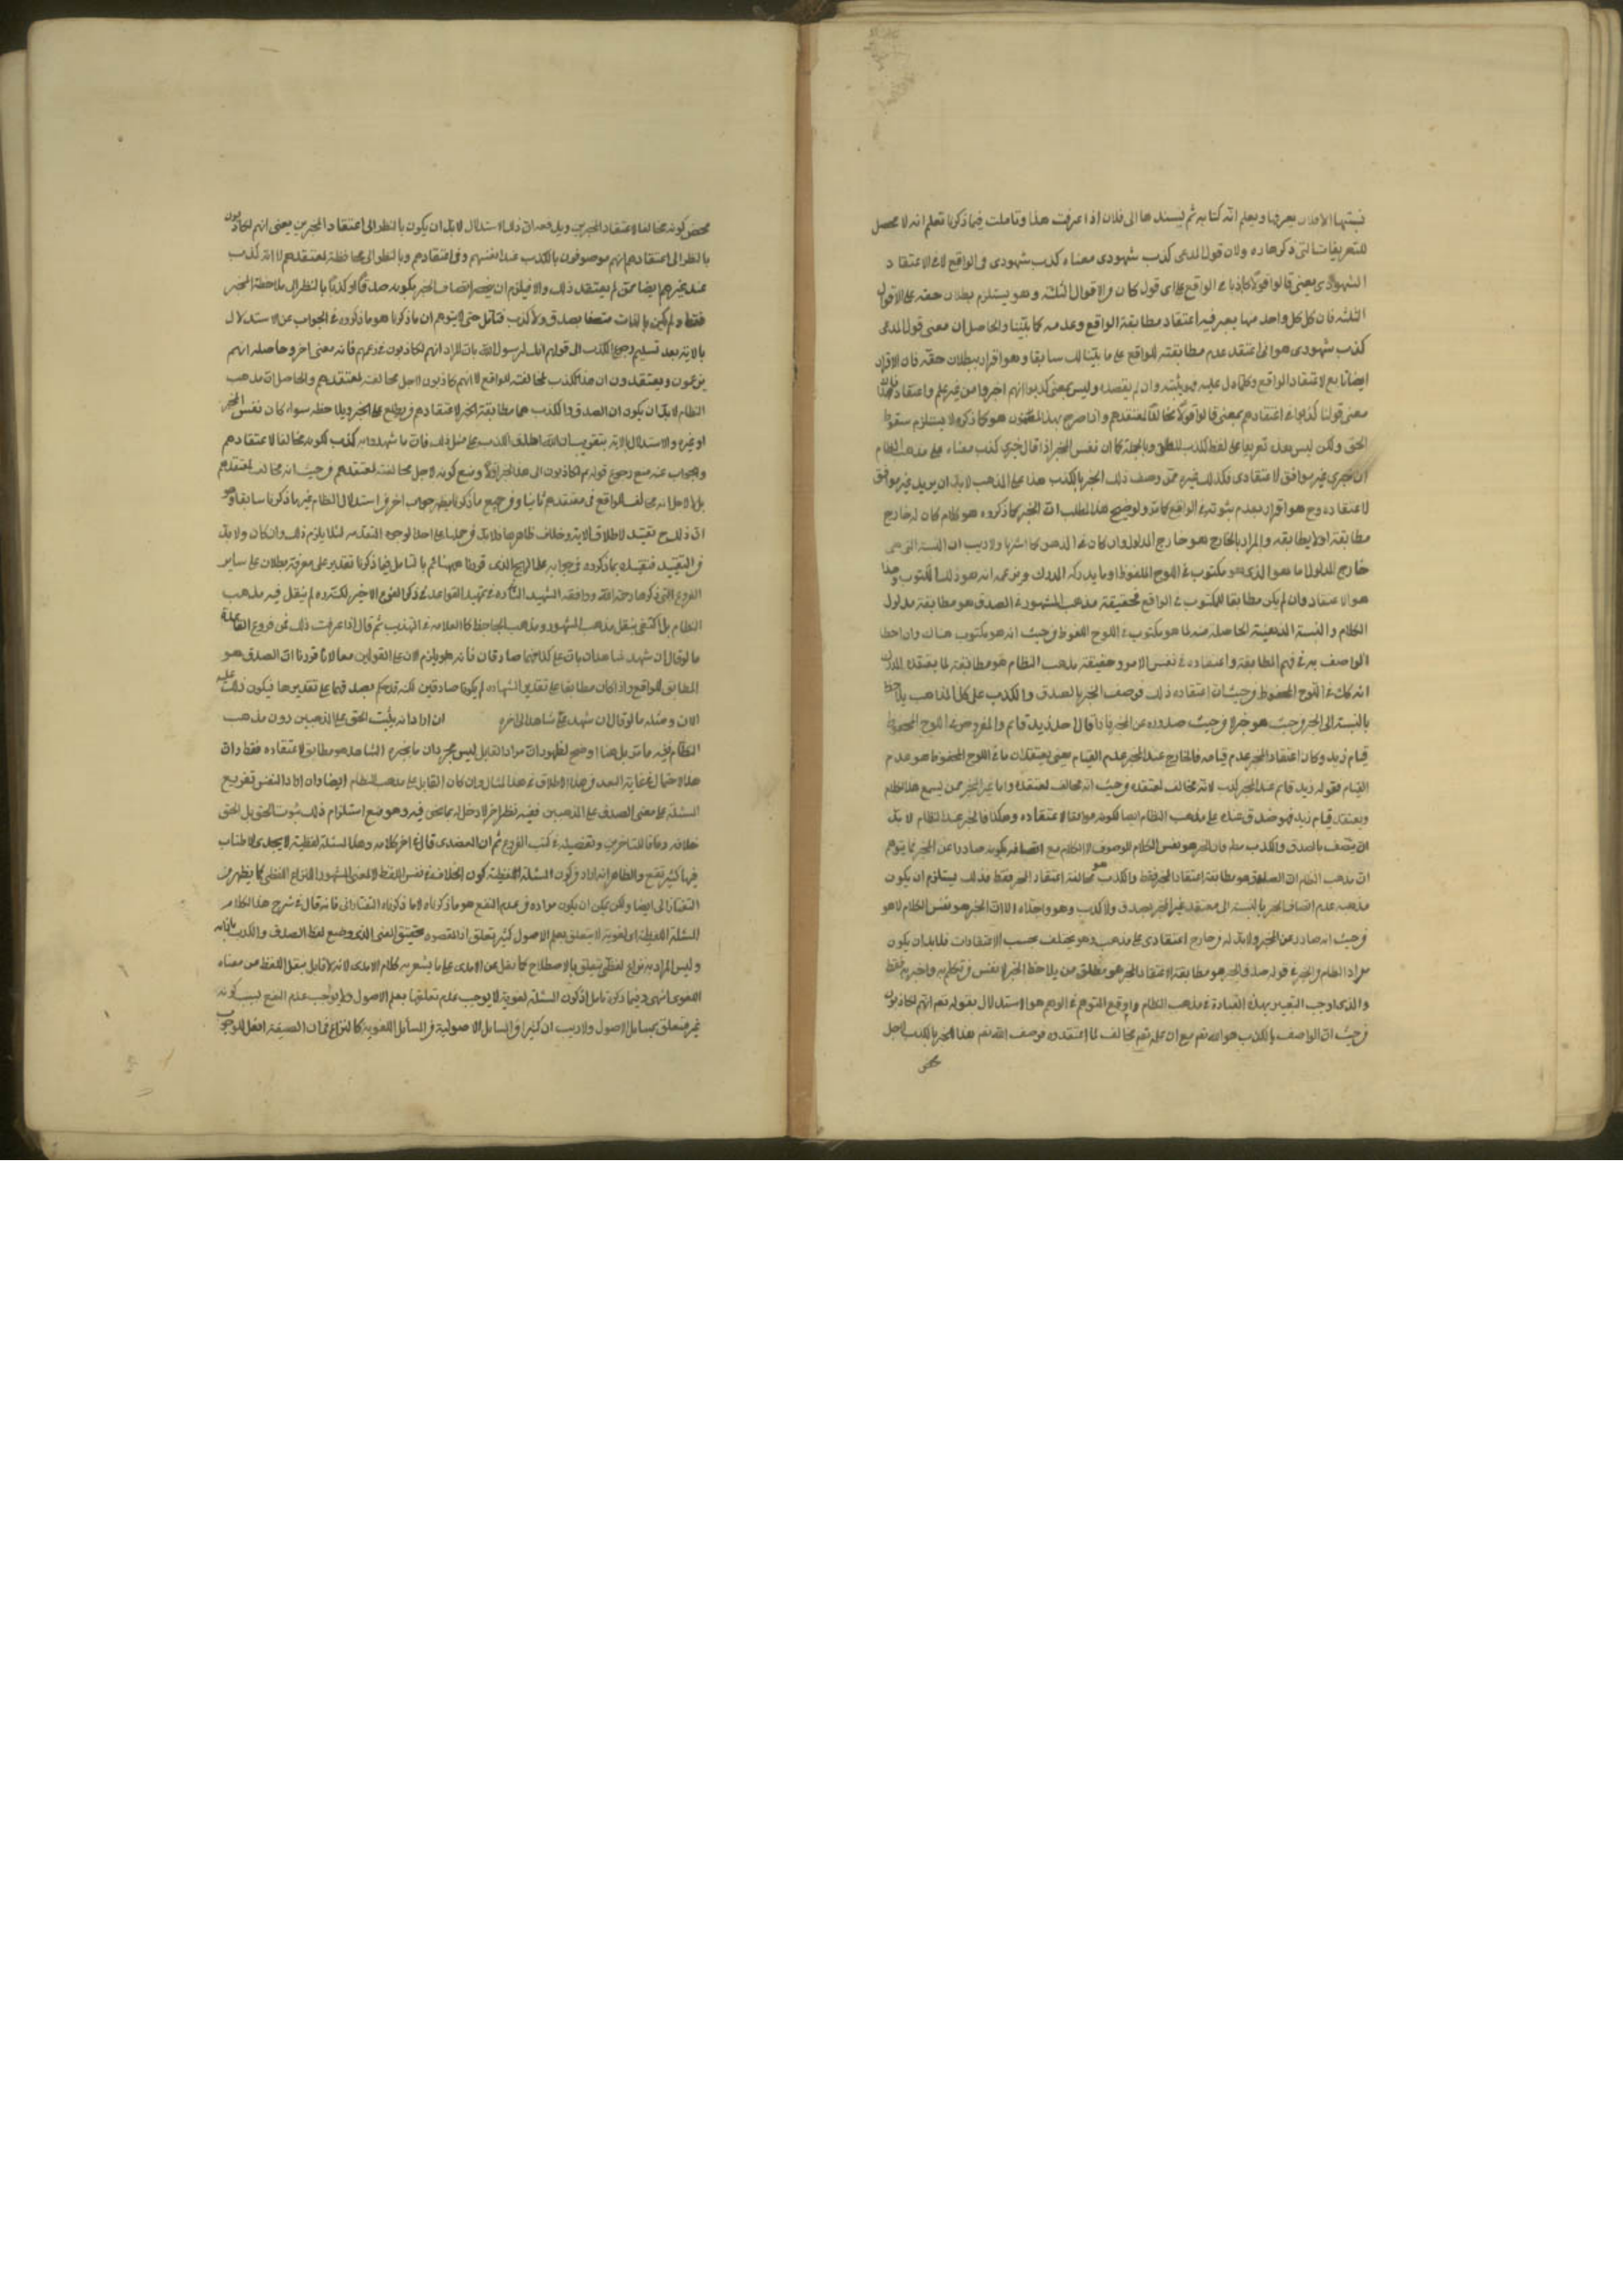 نسبتها الافلان يعرفها ويعلم انه كتابه ثم يسندها الى فلان اذا عرفت هذا وتاملت فيما ذكرنا تعلم انه لا محصل
للتعريفات التى ذكرها ره ولان قول المدعى كذب شهودى معناه كذب شهودى فى الواقع لا فى الاعتقاد
الشهود اى بمعنى قالوا قولا كاذبا فى الواقع على اى قول كان من الاقوال الثلثه وهو يستلزم بطلان حقه على الاقوال
الثلثه فان كل واحد منها يعبر فيه اعتقاد مطابقة الواقع وعدمه كما بيّنا والحاصل ان معنى قول المدعى
كذب شهودى هو انى اعتقد عدم مطابقته للواقع على ما بيّنا لك سابقا وهو اقرار ببطلان حقه فان الاقرار
ايضا تابع لاعتقاد الواقع وكلما دل عليه فهو يثبته وان لم يقصده وليس بمعنى كذبوا انهم اخبروا من غير علم واعتقاد
معنى قولنا كذبوا فى اعتقادهم بمعنى قالوا قولا مخالفا لمعتقدهم واذا صرح بهذا هو كما ذكره لا يستلزم سقوط
الحق ولكن ليس بعد تعريفا على لفظ الكذب المطلق وبالجملة كما ان نفس المخبر اذا قال خبرى كذب معناه على مذهب النظام
ان خبرى غير موافق لاعتقادى فكذلك غيره متى وصف ذلك الخبر بالكذب هذا على المذهب لابد ان يريد غير موافق
لاعتقاده وح هو اقرار بعدم ثبوته فى الواقع كما مر ولتوضيح هذا المطلب ان الخبر كما ذكروه هو كلام كان له خارج
مطابقة او لا يطابقه والمراد بالخارج هو خارج المدلول وان كان فى الذهن كما اشرنا ولا ريب ان النسبة التى هى
خارج المدلول ما هو الذى هو مكتوب فى اللوح المحفوظ او ما يدركه المدرك ويزعمه انه هو ذلك المكتوب وهذا
هو الاعتقاد وان لم يكن مطابقا للمكتوب فى الواقع فحقيقة مذهب المشهور فى الصدق هو مطابقة مدلول
الكلام والنسبة الذهنية الحاصلة منه لما هو مكتوب فى اللوح المحفوظ من حيث انه هو مكتوب هناك وان اخطا
الواصف به فى فهم المطابقة واعتقاده فى نفس الامر وحقيقة مذهب النظام هو مطابقته لما يعتقده المدرك
انه كان فى اللوح المحفوظ من حيث ان اعتقاده ذلك فوصف الخبر بالصدق والكذب على كل المذاهب يلاحظ
بالنسبة الى الخبر من حيث هو خبر لا من حيث صدوره عن المخبر فاذا قال احد زيد قائم والمفروض فى اللوح المحفوظ
قيام زيد وكان اعتقاد المخبر عدم قيامه فالخارج عند المخبر عدم القيام يعنى يعتقد ان ما فى اللوح المحفوظ هو عدم
القيام فقوله زيد قائم عند المخبر كذب لانه مخالف لمعتقده من حيث انه مخالف لمعتقده واما غير المخبر ممن يسمع هذا الكلام
ويعتقد قيام زيد فهو صدق عنده على مذهب النظام ايضا لكونه موافقا لاعتقاده وهكذا فالخبر عند النظام لابد
ان يتصف بالصدق والكذب معا فان الخبر هو نفس الكلام الموصوف لا الكلام مع اتصافه بكونه صادرا عن المخبر فما يتوهم
ان مذهب النظام ان الصدق هو مطابقة اعتقاد المخبر فقط والكذب هو مخالفة اعتقاد المخبر فقط فذلك يستلزم ان يكون
مذهبه عدم اتصاف الخبر بالنسبة الى معتقد غير المخبر بصدق ولا كذب وهو الا ان الخبر هو نفس الكلام لا هو
من حيث انه صادر عن المخبر ولابد له من خارج اعتقادى على مذهبه وهو يختلف بحسب الاعتقادات فلابد ان يكون
مراد النظام والمخبر فى قوله صدق الخبر هو مطابقة لاعتقاد المخبر هو مطلق من يلاحظ الخبر لا نفس من تكلم به واخبر به فقط
والذى اوجب التعبير بهذه العبارة فى مذهب النظام واوقع المتوهم فى الوهم هو الاستدلال بقوله تعم انهم لكاذبون
من حيث ان الواصف بالكذب هو الله تعم مع ان علمه تعم مخالف لما اعتقدوه فوصف الله تعم هذا الخبر بالكذب لاجل
محض
محض كونه مخالفا لاعتقاد المخبرين ويدفعه ان ذلك الاستدلال لابد ان يكون بالنظر الى اعتقاد المخبرين يعنى انهم لكاذبون
بالنظر الى اعتقادهم انهم موصوفون بالكذب عند انفسهم وفى اعتقادهم وبالنظر الى ملاحظة معتقدهم لا انه كذب
عند غيرهم ايضا ممن لم يعتقد ذلك والا فيلزم ان ينحصر اتصاف الخبر بكونه صدقا او كذبا بالنظر الى ملاحظة المخبر
فقط ولم يكن بالذات متصفا بصدق ولا كذب فتامل حتى لا يتوهم ان ما ذكرنا هو ما ذكروه فى الجواب عن الاستدلال
بالاية بعد تسليم رجوع الكذب الى قولهم انك لرسول الله بان المراد انهم لكاذبون فى زعمهم فانه معنى اخر وحاصله انهم
يزعمون ويعتقدون ان هذا كذب لمخالفته للواقع لا انهم كاذبون لاجل مخالفته لمعتقدهم والحاصل ان مذهب
النظام لابد ان يكون ان الصدق والكذب هما مطابقة الخبر لاعتقاد من يطلع على الخبر ويلاحظه سواء كان نفس المخبر
او غيره والاستدلال بالاية بتقريب ان الله اطلق الكذب على مثل ذلك فان ما شهدوا به كذب لكونه مخالفا لاعتقادهم
والجواب عنه منع رجوع قولهم لكاذبون الى هذا الخبر اولا ومنع كونه لاجل مخالفته لمعتقدهم من حيث انه مخالف لمعتقدهم
بل لاجل انه مخالف للواقع فى معتقدهم ثانيا ومن جميع ما ذكرنا يظهر جواب اخر من استدلال النظام غير ما ذكرنا سابقا وهو
ان ذلك ح تقييد لاطلاق الاية وخلاف ظاهرها فلابد من حملها على احد الوجوه المتقدمه لئلا يلزم ذلك وان كان ولابد
من التقييد فتقييده بما ذكروه فى جوابه على الذى قررنا ههنا ثم بالتامل فيما ذكرنا تقدر على معرفة بطلان على ساير
الفروع التى ذكرها رحمه الله ووافقه الشهيد الثانى ره فى تمهيد القواعد فى ذكر الفرع الاخير لكنه ره لم ينقل فيه مذهب
النظام بل اكتفى بنقل مذهب المشهور ومذهب الجاحظ كالعلامه فى التهذيب ثم قال اذا عرفت ذلك فمن فروع القاعدة
ما لو قال ان شهد شاهدان بان على كذا فهما صادقان فانه هو يلزم الان على القولين معا لانا قررنا ان الصدق هو
المطابق للواقع واذا كان مطابقا على تقدير الشهاده لم يكونا صادقين لكنه قد حكم بصدقهما على تقديرها فيكون ذلك عليه
الان ومثله ما لو قال ان شهد على شاهد الى اخره ان اراد انه يثبت الحق على المذهبين دون مذهب
النظام ففيه ما مر بل هنا اوضح لظهور ان مراد القايل ليس مجرد ان ما يخبره الشاهد هو مطابق لاعتقاده فقط وان
هذا الاحتمال فى غاية البعد من هذا الاطلاق فى هذا المثال وان كان القايل على مذهب النظام ايضا وان اراد النفس تفريع
المسئلة على معنى الصدق على المذهبين ففيه نظر اخر لا دخل له بما نحن فيه وهو منع استلزام ذلك ثبوت الحق بل الحق
خلافه وفاقا للمتاخرين وتفصيله فى كتب الفروع ثم ان العضدى قال فى اخر كلامه وهذا المسئلة لفظية لا يجدى الاطناب
فيها كثير نفع والظاهر انه اراد من كون المسئلة اللفظية كون الخلاف فى نفس اللفظ لا المعنى المشهور للنزاع اللفظى كما يظهر من
التفتازانى ايضا ولكن يمكن ان يكون مراده من عدم النفع هو ما ذكرناه لا ما ذكره التفتازانى فانه قال فى شرح هذا الكلام
المسئلة اللفظية اى لغوية لا يتعلق بعلم الاصول كثير تعلق اذ المقصود تحقيق المعنى الذى وضع لفظ الصدق والكذب بازائه
وليس المراد به نزاع لفظى يتعلق بالاصطلاح كما نقل عن الامدى على ما يشعر به كلام الامدى لانه لا قايل بنقل اللفظ من معناه
اللغوى انتهى وفيما ذكره تامل اذ كون المسئلة لغوية لا يوجب عدم تعلقها بعلم الاصول ولا يوجب عدم النفع بسبب كونه
غير متعلق بمسايل الاصول ولا ريب ان كثيرا من المسايل الاصولية من المسايل اللغوية كالنزاع فى ان الصيغة افعل للوجوب